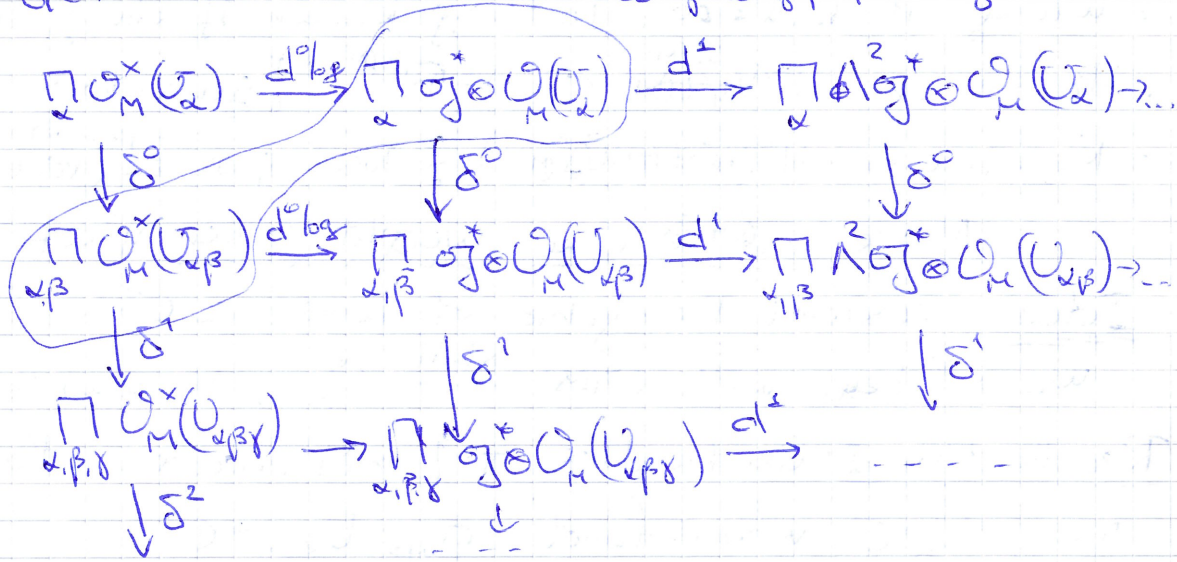 ∏_α 𝒪_M^×(U_α) —d⁰log→ ∏_α 𝔤^*⊗𝒪_M(U_α) —d¹→ ∏_α Λ²𝔤^*⊗𝒪_M(U_α)→...
↓δ⁰ ↓δ⁰ ↓δ⁰
∏_{αβ} 𝒪_M^×(U_{αβ}) —d⁰log→ ∏_{α,β} 𝔤^*⊗𝒪_M(U_{αβ}) —d¹→ ∏_{α,β} Λ²𝔤^*⊗𝒪_M(U_{αβ})→...
↓δ¹ ↓δ¹ ↓δ¹
∏_{α,β,γ} 𝒪_M^×(U_{αβγ}) → ∏_{α,β,γ} 𝔤^*⊗𝒪_M(U_{αβγ}) —d¹→ -----
↓δ² ↓
- - - -